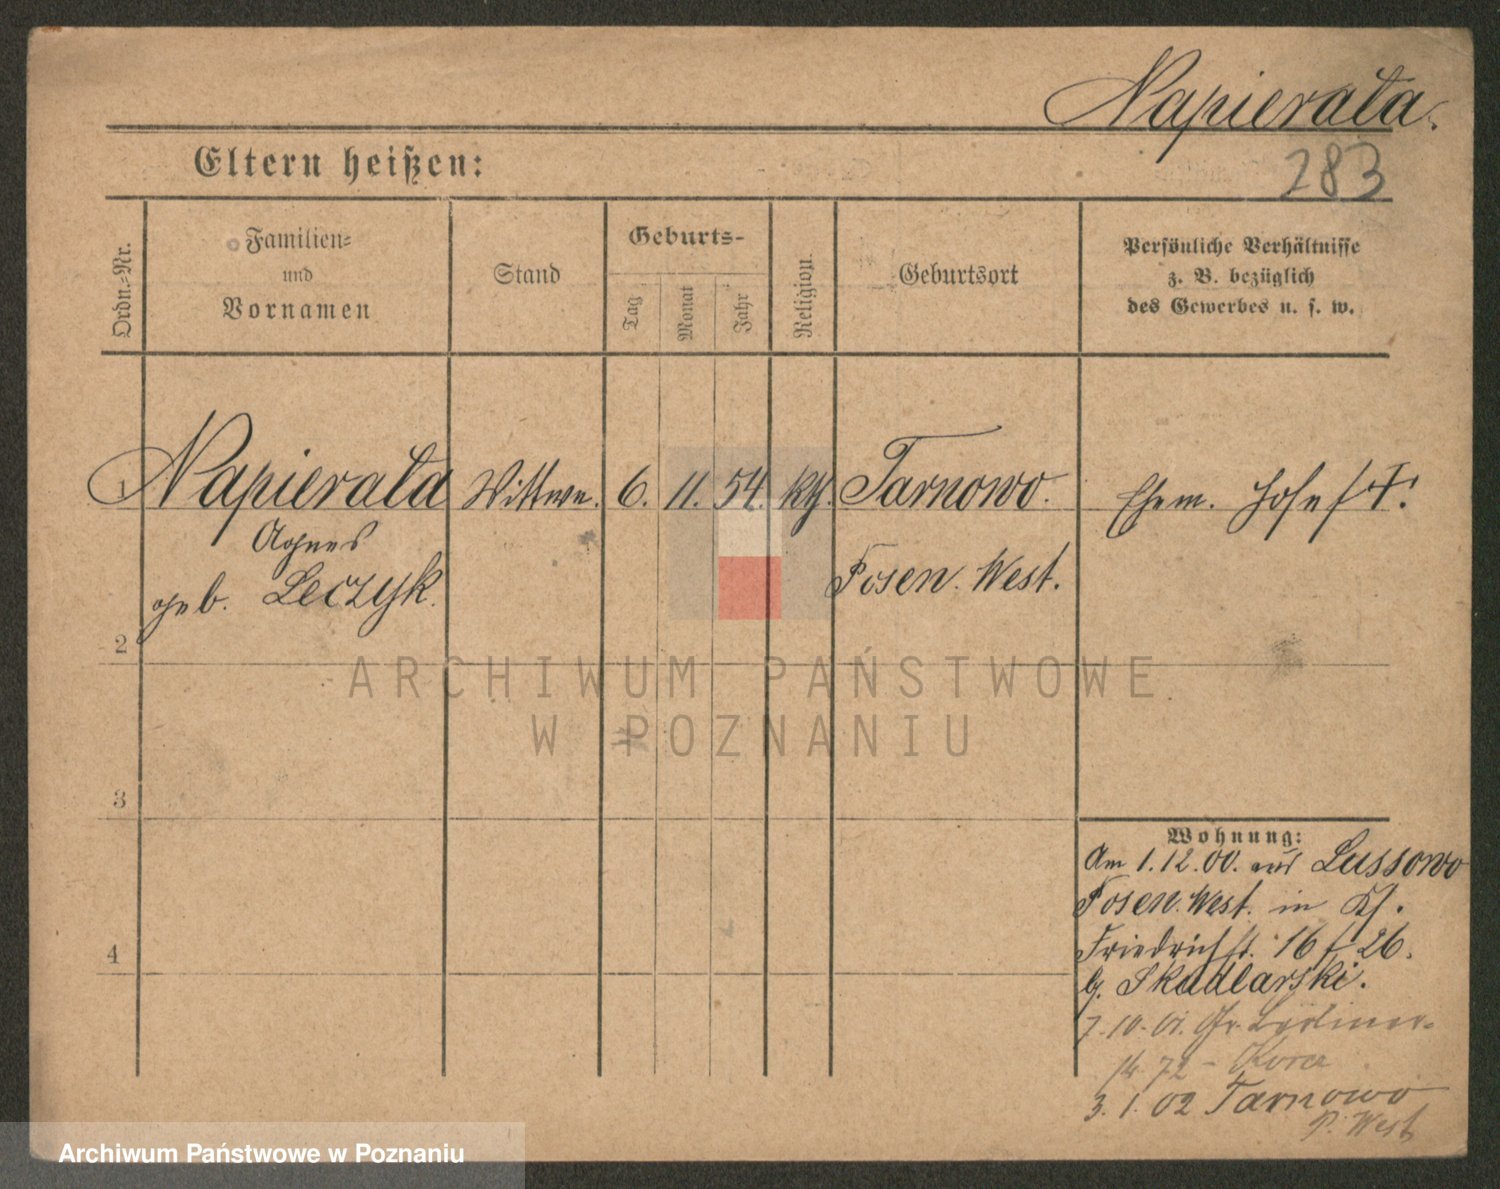 Napierała.
Eltern heißen:
283
Ordn.-Nr.
Familien-
und
Vornamen
Stand
Geburts-
Tag
Monat
Jahr
Religion
Geburtsort
Persönliche Verhältnisse
z. B. bezüglich
des Gewerbes u. s. w.
1 Napierała Wittwe. 6. 11. 54. kth. Tarnowo. Ehem. Josef †.
Agnes
geb. Leczyk. Posen. West.
2
ARCHIWUM PAŃSTWOWE
W POZNANIU
3
Wohnung:
Am 1.12.00. aus Lussowo
Posen. West. in
4 Friedrichst. 16 26.
b. Skadlarski.
7.10.01. Gr. Berliner-
72 -
3. 1. 02 Tarnowo
P. West
Archiwum Państwowe w Poznaniu